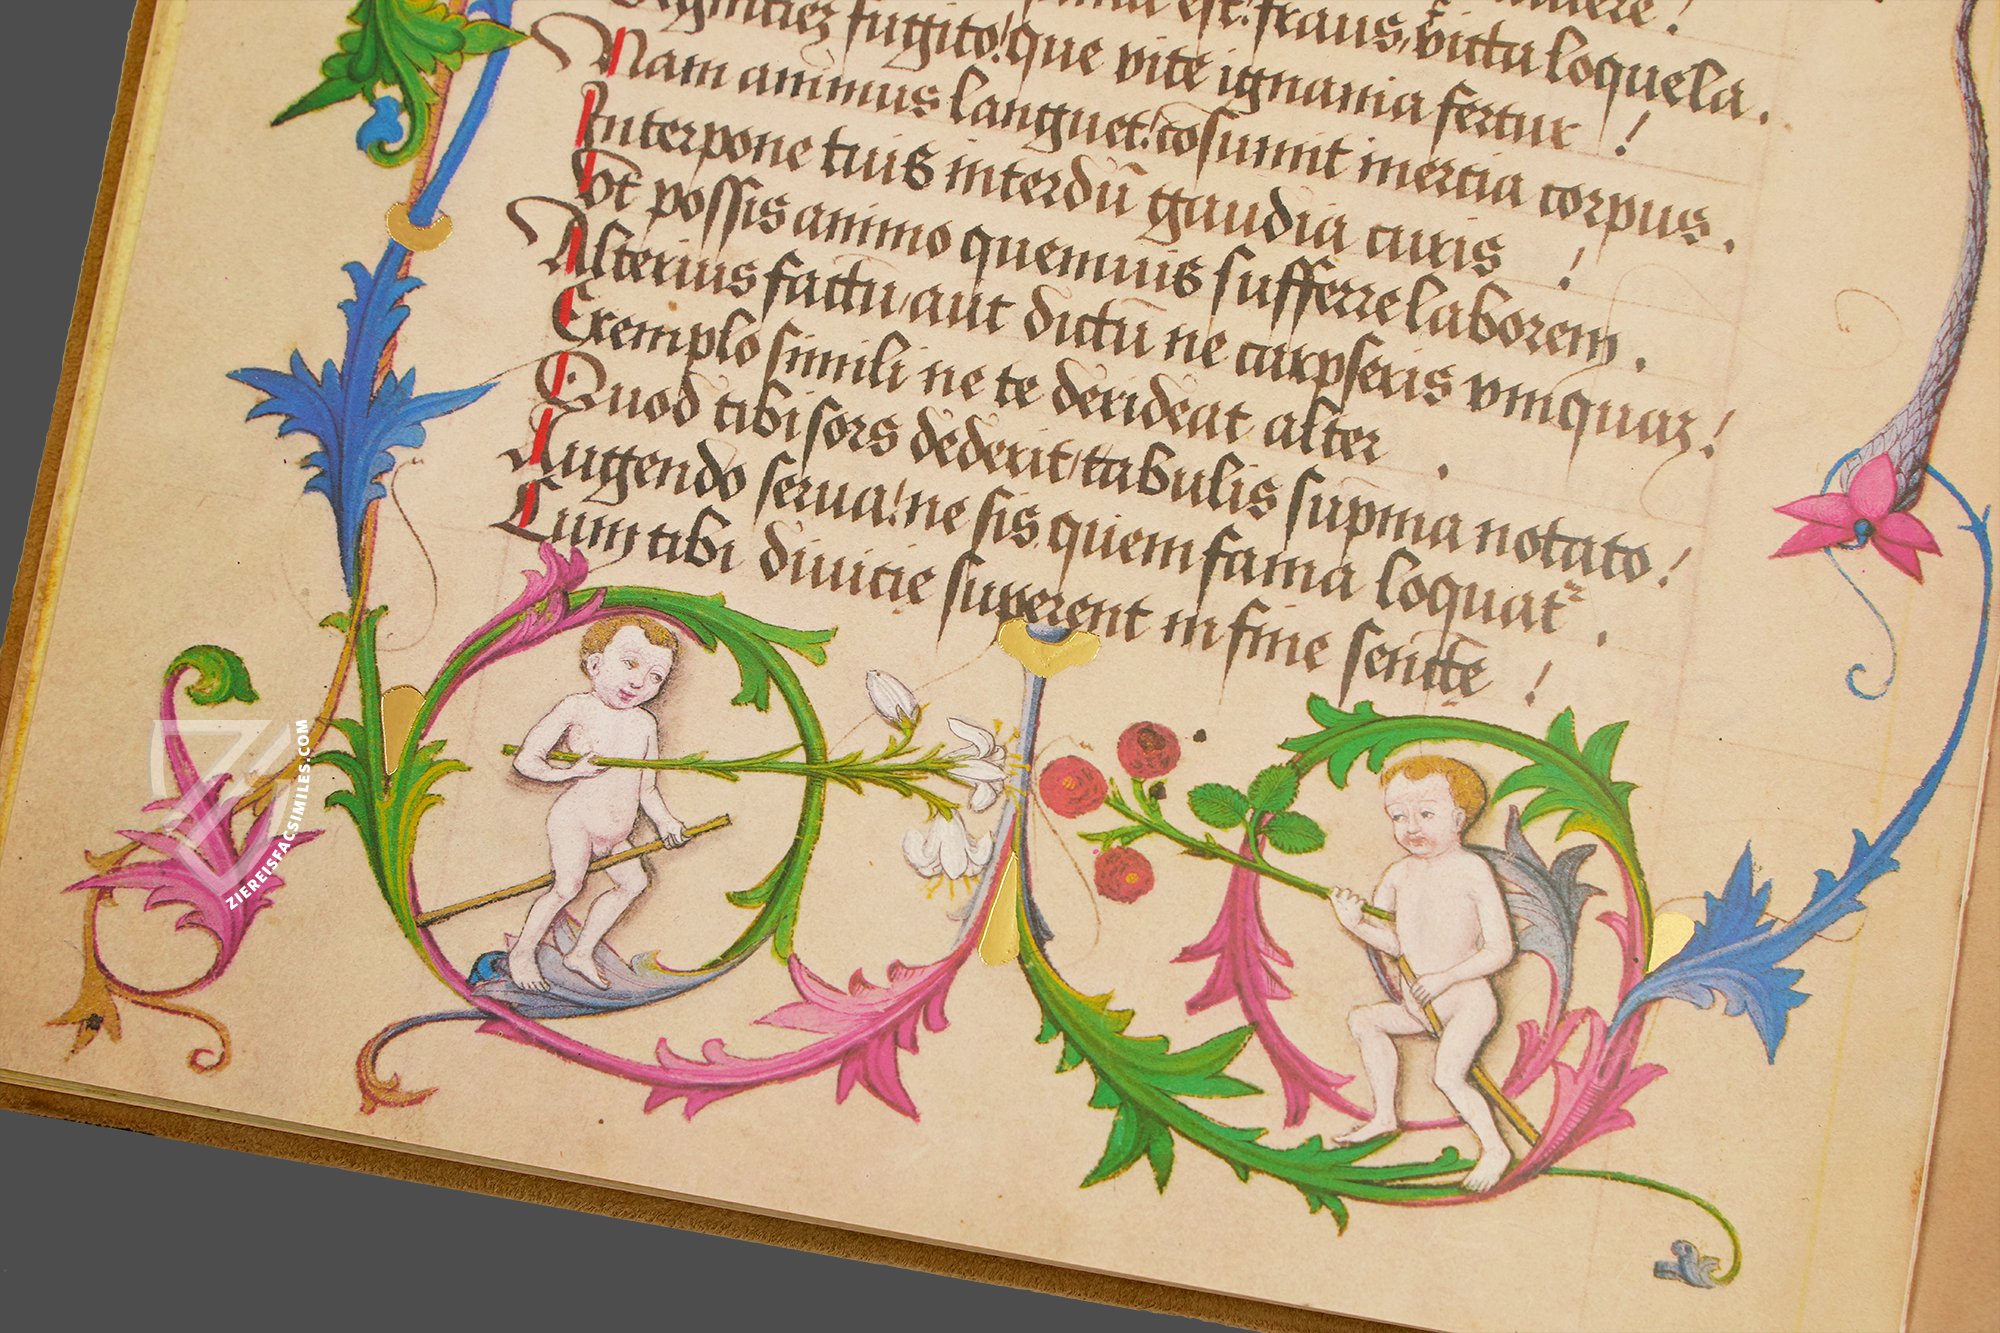 est: fraus, victa loquela.
fugito! que vite ignauia fertur !
Nam animus languet! cōsumit inertia corpus.
Interpone tuis interdū gaudia curis !
Vt possis animo quemuis sufferre laborem.
Alterius factū, aut dictū ne carpseris vmquaȝ !
Exemplo simili ne te derideat alter .
Quod tibi sors dederit, tabulis sup̄ma notato !
Augendo serua! ne sis quem fama loquatᷣ .
Cum tibi diuicię superent in fine senectę !
ZIEREISFACSIMILES.COM